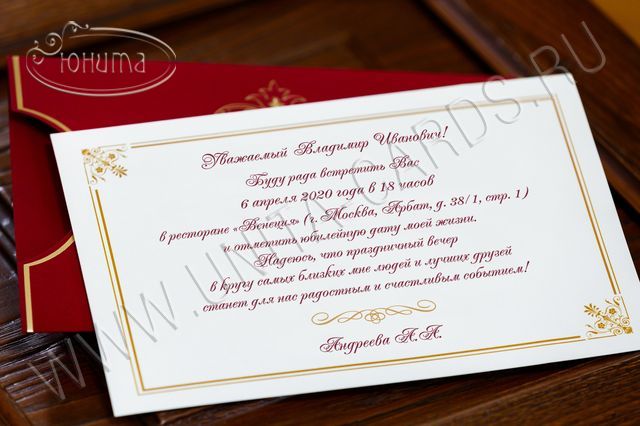 Юнита
Уважаемый Владимир Иванович!
Буду рада встретить Вас
6 апреля 2020 года в 18 часов
в ресторане «Венеция» (г. Москва, Арбат, д. 38/1, стр. 1)
и отметить юбилейную дату моей жизни.
Надеюсь, что праздничный вечер
в кругу самых близких мне людей и лучших друзей
станет для нас радостным и счастливым событием!
Андреева А.А.
WWW.UNITA-CARDS.RU